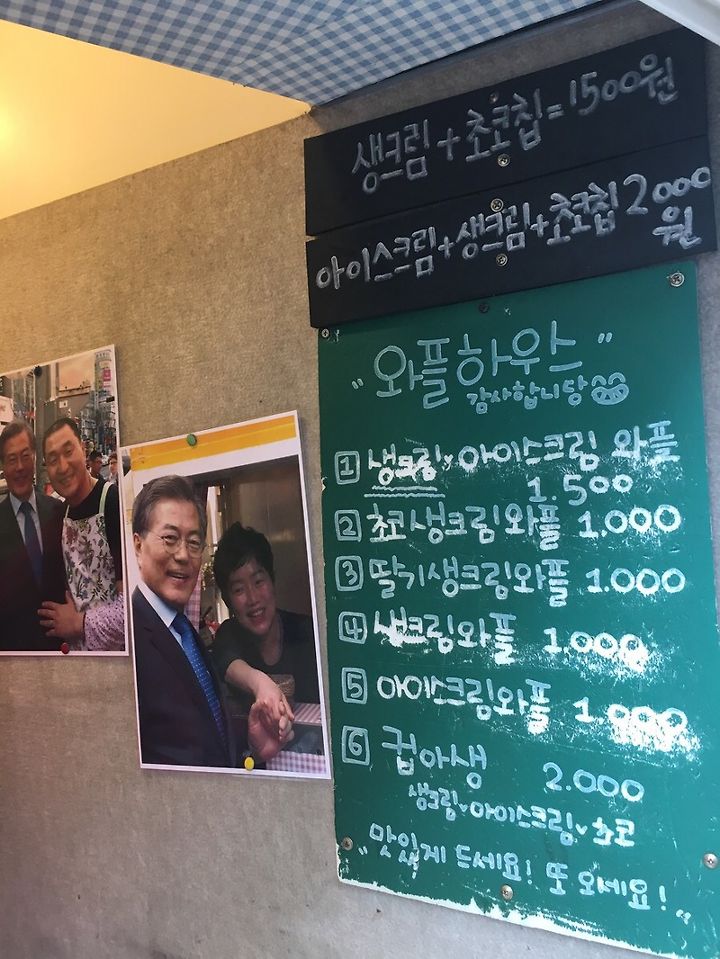 생크림+초코칩=1500원
아이스크림+생크림+초코칩 2000
원
"와플하우스"
감사합니당
1 생크림∨아이스크림 와플
1.500
2 초코생크림와플 1.000
3 딸기생크림와플 1.000
4 생크림와플 1.000
5 아이스크림와플 1.000
6 컵아생 2.000
생크림∨아이스크림∨초코
"맛있게 드세요! 또 오세요!"